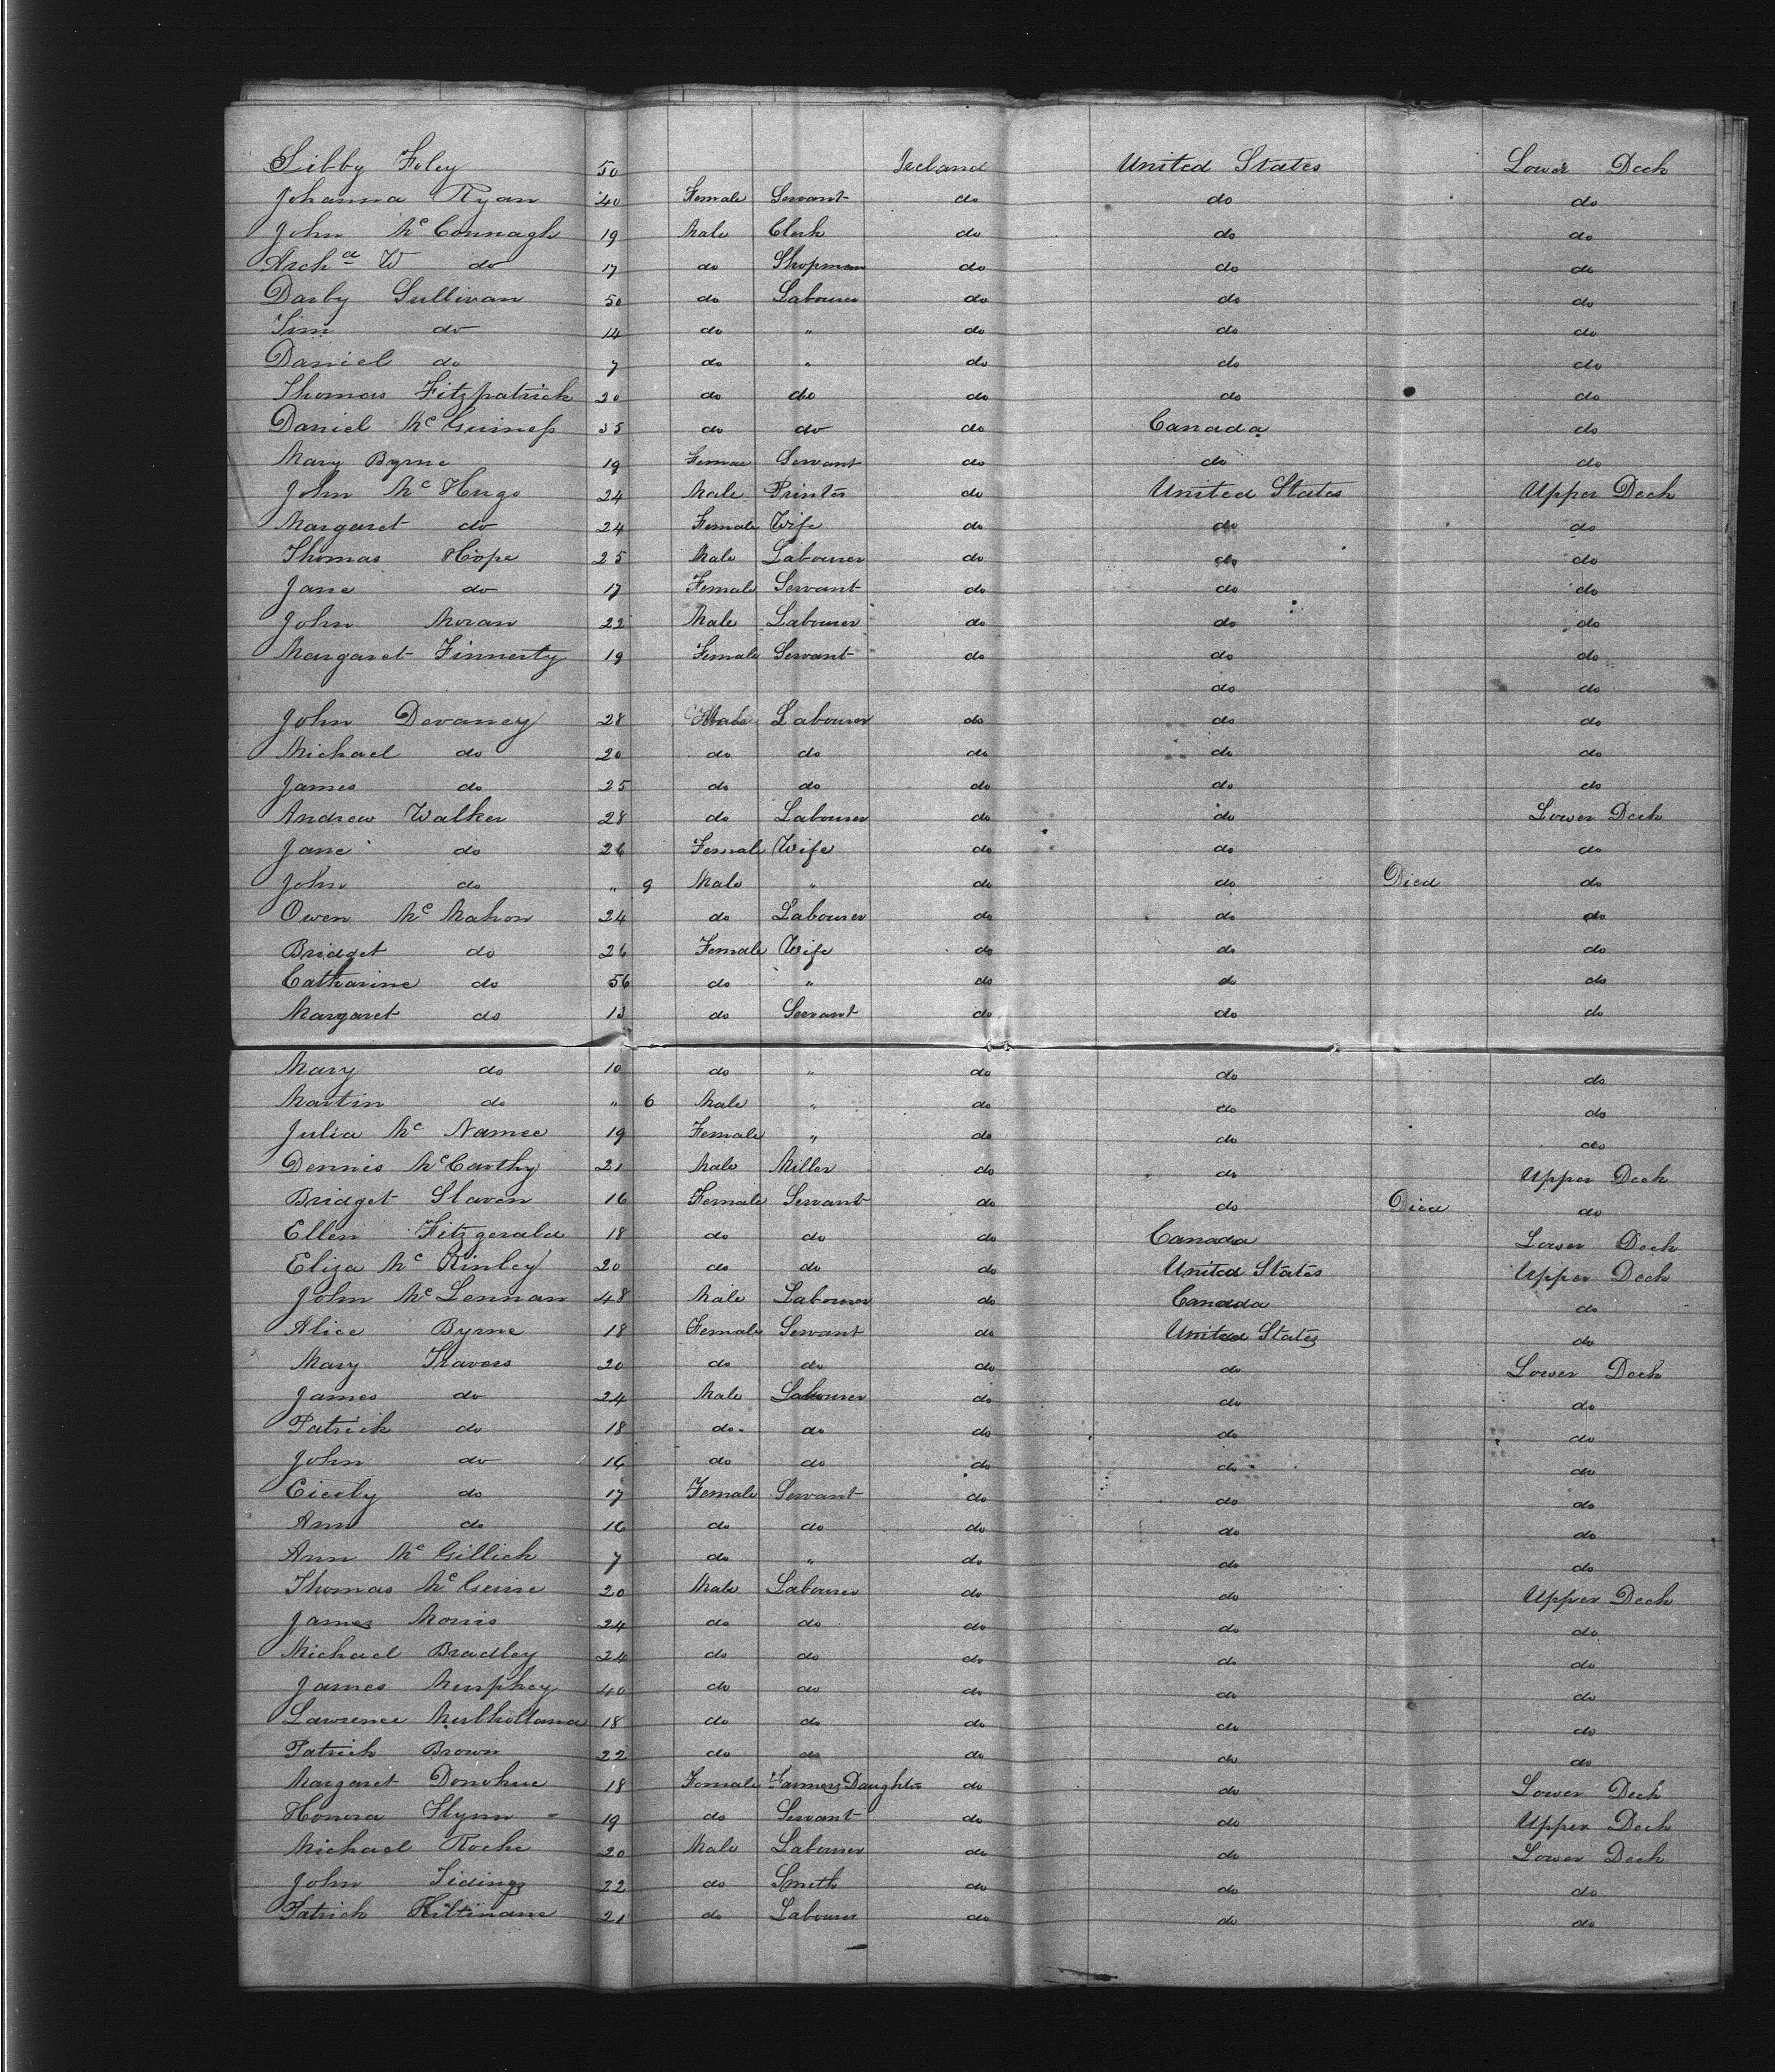 Libby Foley 50 Ireland United States Lower Deck
Johanna Ryan 40 Female Servant do do do
John McConnagh 19 Male Clerk do do do
Archd W do 17 do Shopman do do do
Darby Sullivan 50 do Labourer do do do
Tim do 14 do " do do do
Daniel do 7 do " do do do
Thomas Fitzpatrick 20 do do do do do
Daniel McGuiness 35 do do do Canada do
Mary Byrne 19 Femae Servant do do do
John McHugo 24 Male Printer do United States Upper Deck
Margaret do 24 Female Wife do do do
Thomas Hope 25 Male Labourer do do do
Jane do 17 Female Servant do do do
John Moran 22 Male Labourer do do do
Margaret Finnerty 19 Female Servant do do do
do do
John Devaney 28 Male Labourer do do do
Michael do 20 do do do do do
James do 25 do do do do do
Andrew Walker 28 do Labourer do do Lower Deck
Jane do 26 Female Wife do do do
John do " 9 Male " do do Died do
Owen McMahon 24 do Labourer do do do
Bridget do 26 Female Wife do do do
Catharine do 56 do " do do do
Margaret do 13 do Servant do do do
Mary do 10 do " do do do
Martin do " 6 Male " do do do
Julia McNamee 19 Female " do do do
Dennis McCarthy 21 Male Miller do do Upper Deck
Bridget Slaven 16 Female Servant do do Died do
Ellen Fitzgerald 18 do do do Canada Lower Deck
Eliza McKinley 20 do do do United States Upper Deck
John McLennan 48 Male Labourer do Canada do
Alice Byrne 18 Female Servant do United States do
Mary Travers 20 do do do do Lower Deck
James do 24 Male Labourer do do do
Patrick do 18 do do do do do
John do 16 do do do do do
Cicely do 17 Female Servant do do do
Ann do 16 do do do do do
Ann McGillick 7 do " do do do
Thomas McGuire 20 Male Labourer do do Upper Deck
James Morris 24 do do do do do
Michael Bradley 24 do do do do do
James Murphey 40 do do do do do
Lawrence Mulholland 18 do do do do do
Patrick Brown 22 do do do do do
Margaret Donohue 18 Female Farmers Daughter do do Lower Deck
Honora Flynn 19 do Servant do do Upper Deck
Michael Roche 20 Male Labourer do do Lower Deck
John Tidings 22 do Smith do do do
Patrick 21 do Labourer do do do